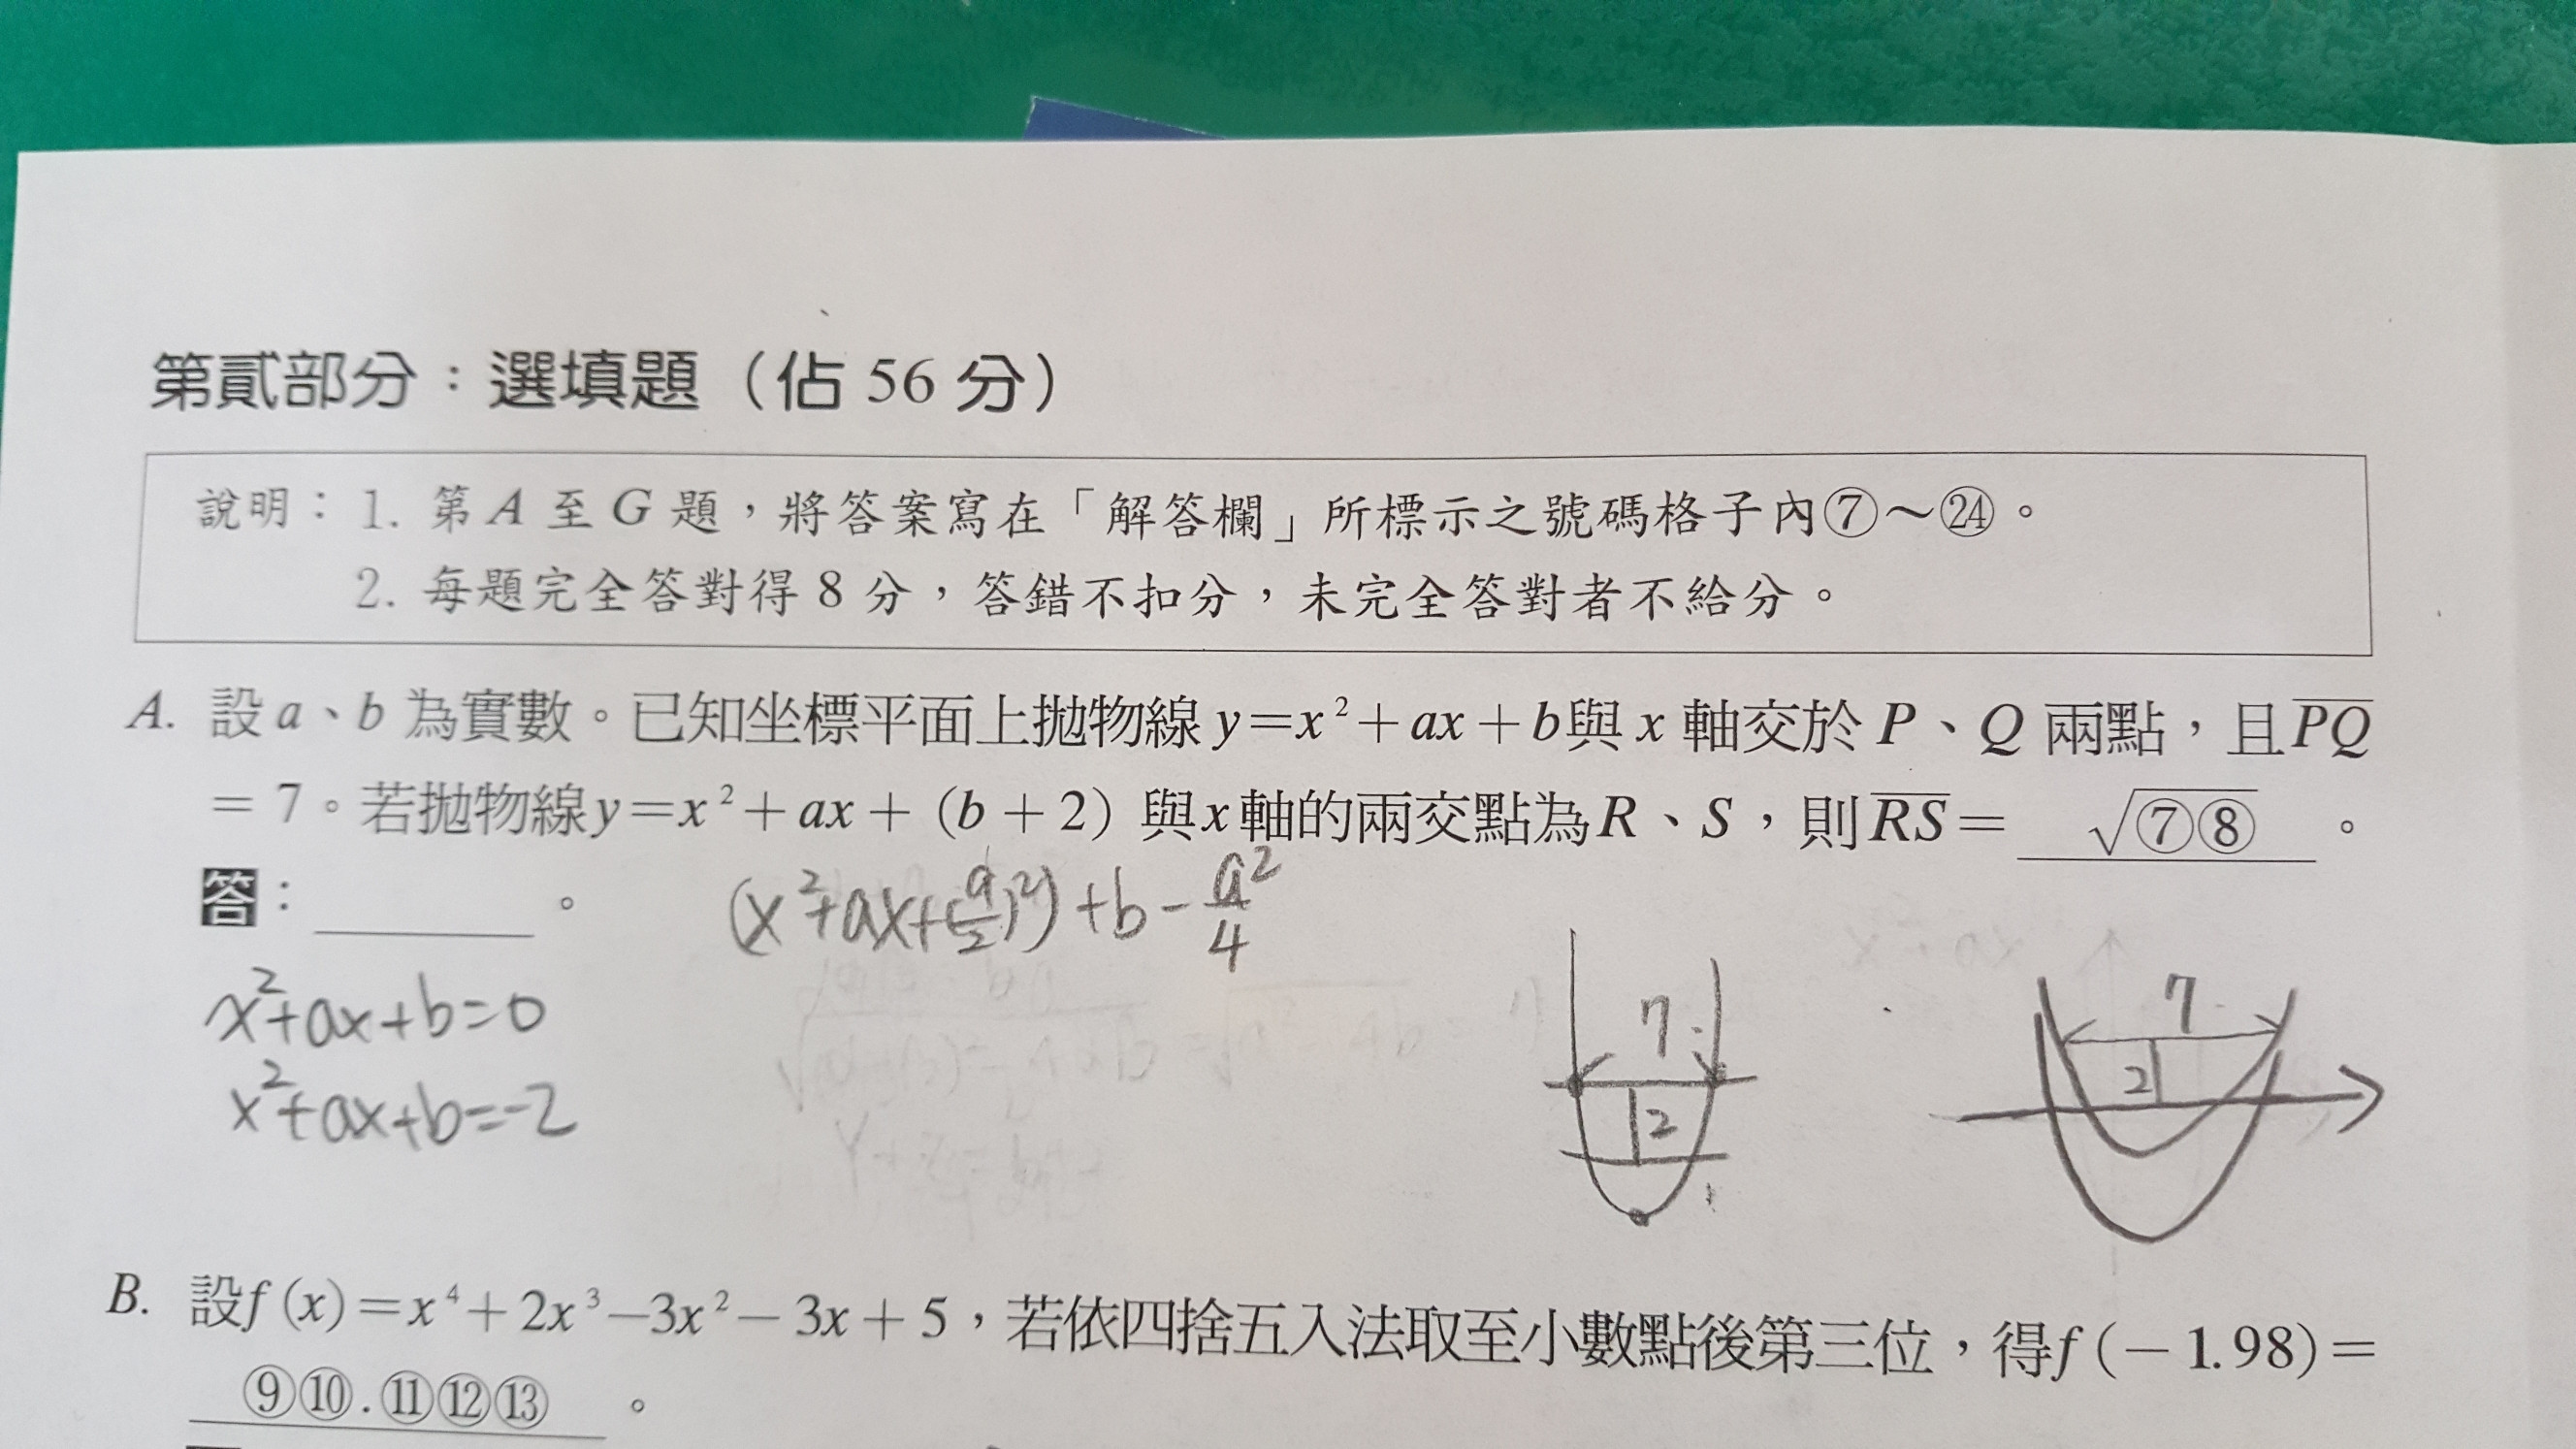 第貳部分：選填題（佔 56 分）
說明：1. 第 A 至 G 題，將答案寫在「解答欄」所標示之號碼格子內⑦～㉔。
2. 每題完全答對得 8 分，答錯不扣分，未完全答對者不給分。
A. 設 a、b 為實數。已知坐標平面上拋物線 y=x²+ax+b與 x 軸交於 P、Q 兩點，且P̅Q̅
= 7。若拋物線y=x²+ax+(b+2) 與x軸的兩交點為R、S，則R̅S̅= √⑦⑧ 。
答：______。
(x²+ax+(a/2)²)+b-a²/4
x²+ax+b=0
x²+ax+b=-2
7
2
7
2
B. 設f(x)=x⁴+2x³-3x²-3x+5，若依四捨五入法取至小數點後第三位，得f(-1.98)=
⑨⑩.⑪⑫⑬ 。